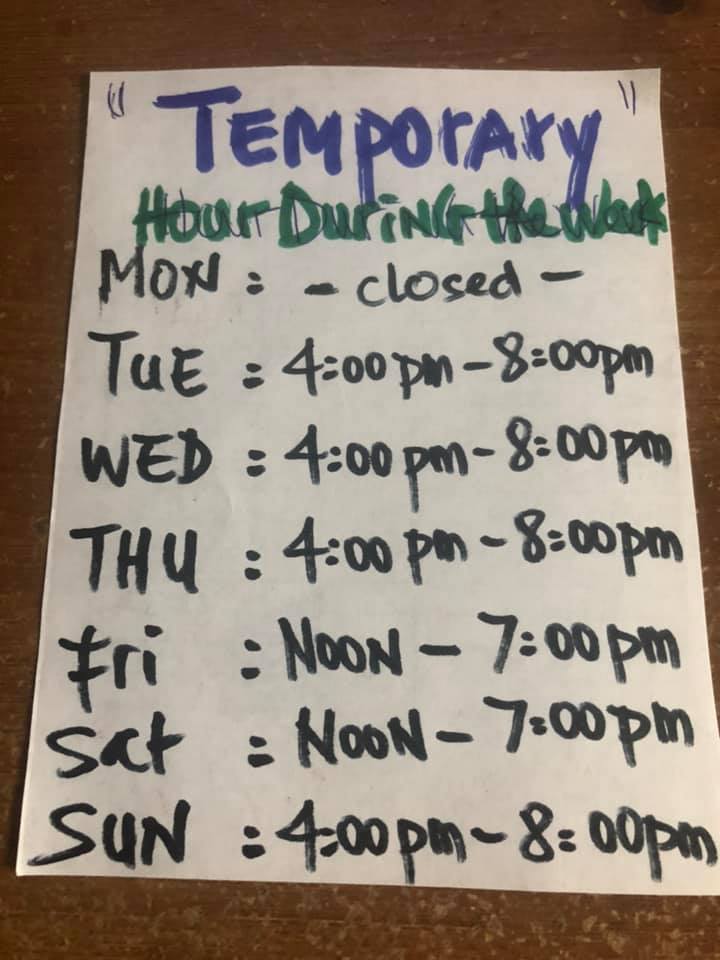 " TEMPORARY "
Hour During the Week
MON : - closed -
TUE : 4:00pm - 8:00pm
WED : 4:00pm - 8:00pm
THU : 4:00pm - 8:00pm
Fri : NOON - 7:00pm
Sat : NOON - 7:00pm
SUN : 4:00pm - 8:00pm